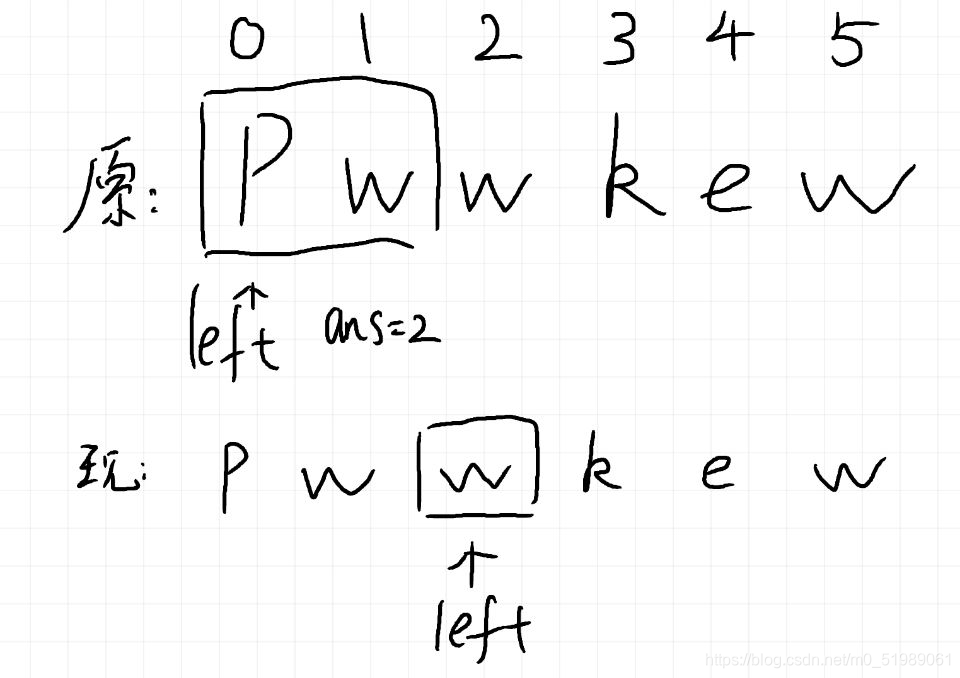 0 1 2 3 4 5
原: P w w k e w
left ans=2
现: P w w k e w
left
https://blog.csdn.net/m0_51989061